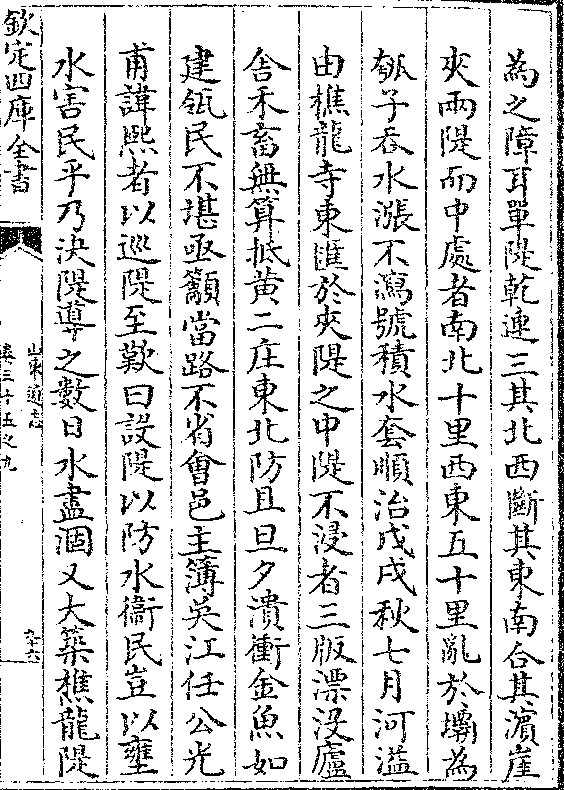 為之障耳單隄乾連三其北西斷其東南合其濵崖
夾兩隄而中處者南北十里西東五十里亂於壩為
瓠子吞水漲不瀉號積水套順治戊戌秋七月河溢
由樵龍寺東匯於夾隄之中隄不浸者三版漂沒廬
舍禾畜無算抵黄二庄東北防且旦夕潰衝金魚如
建瓴民不堪亟籲當路不省會邑主簿吳江任公光
甫諱熙者以巡隄至歎曰設隄以防水衞民豈以壅
水害民乎乃決隄導之數日水盡涸又大築樵龍隄
欽定四庫全書
山東通志
卷三十五之九